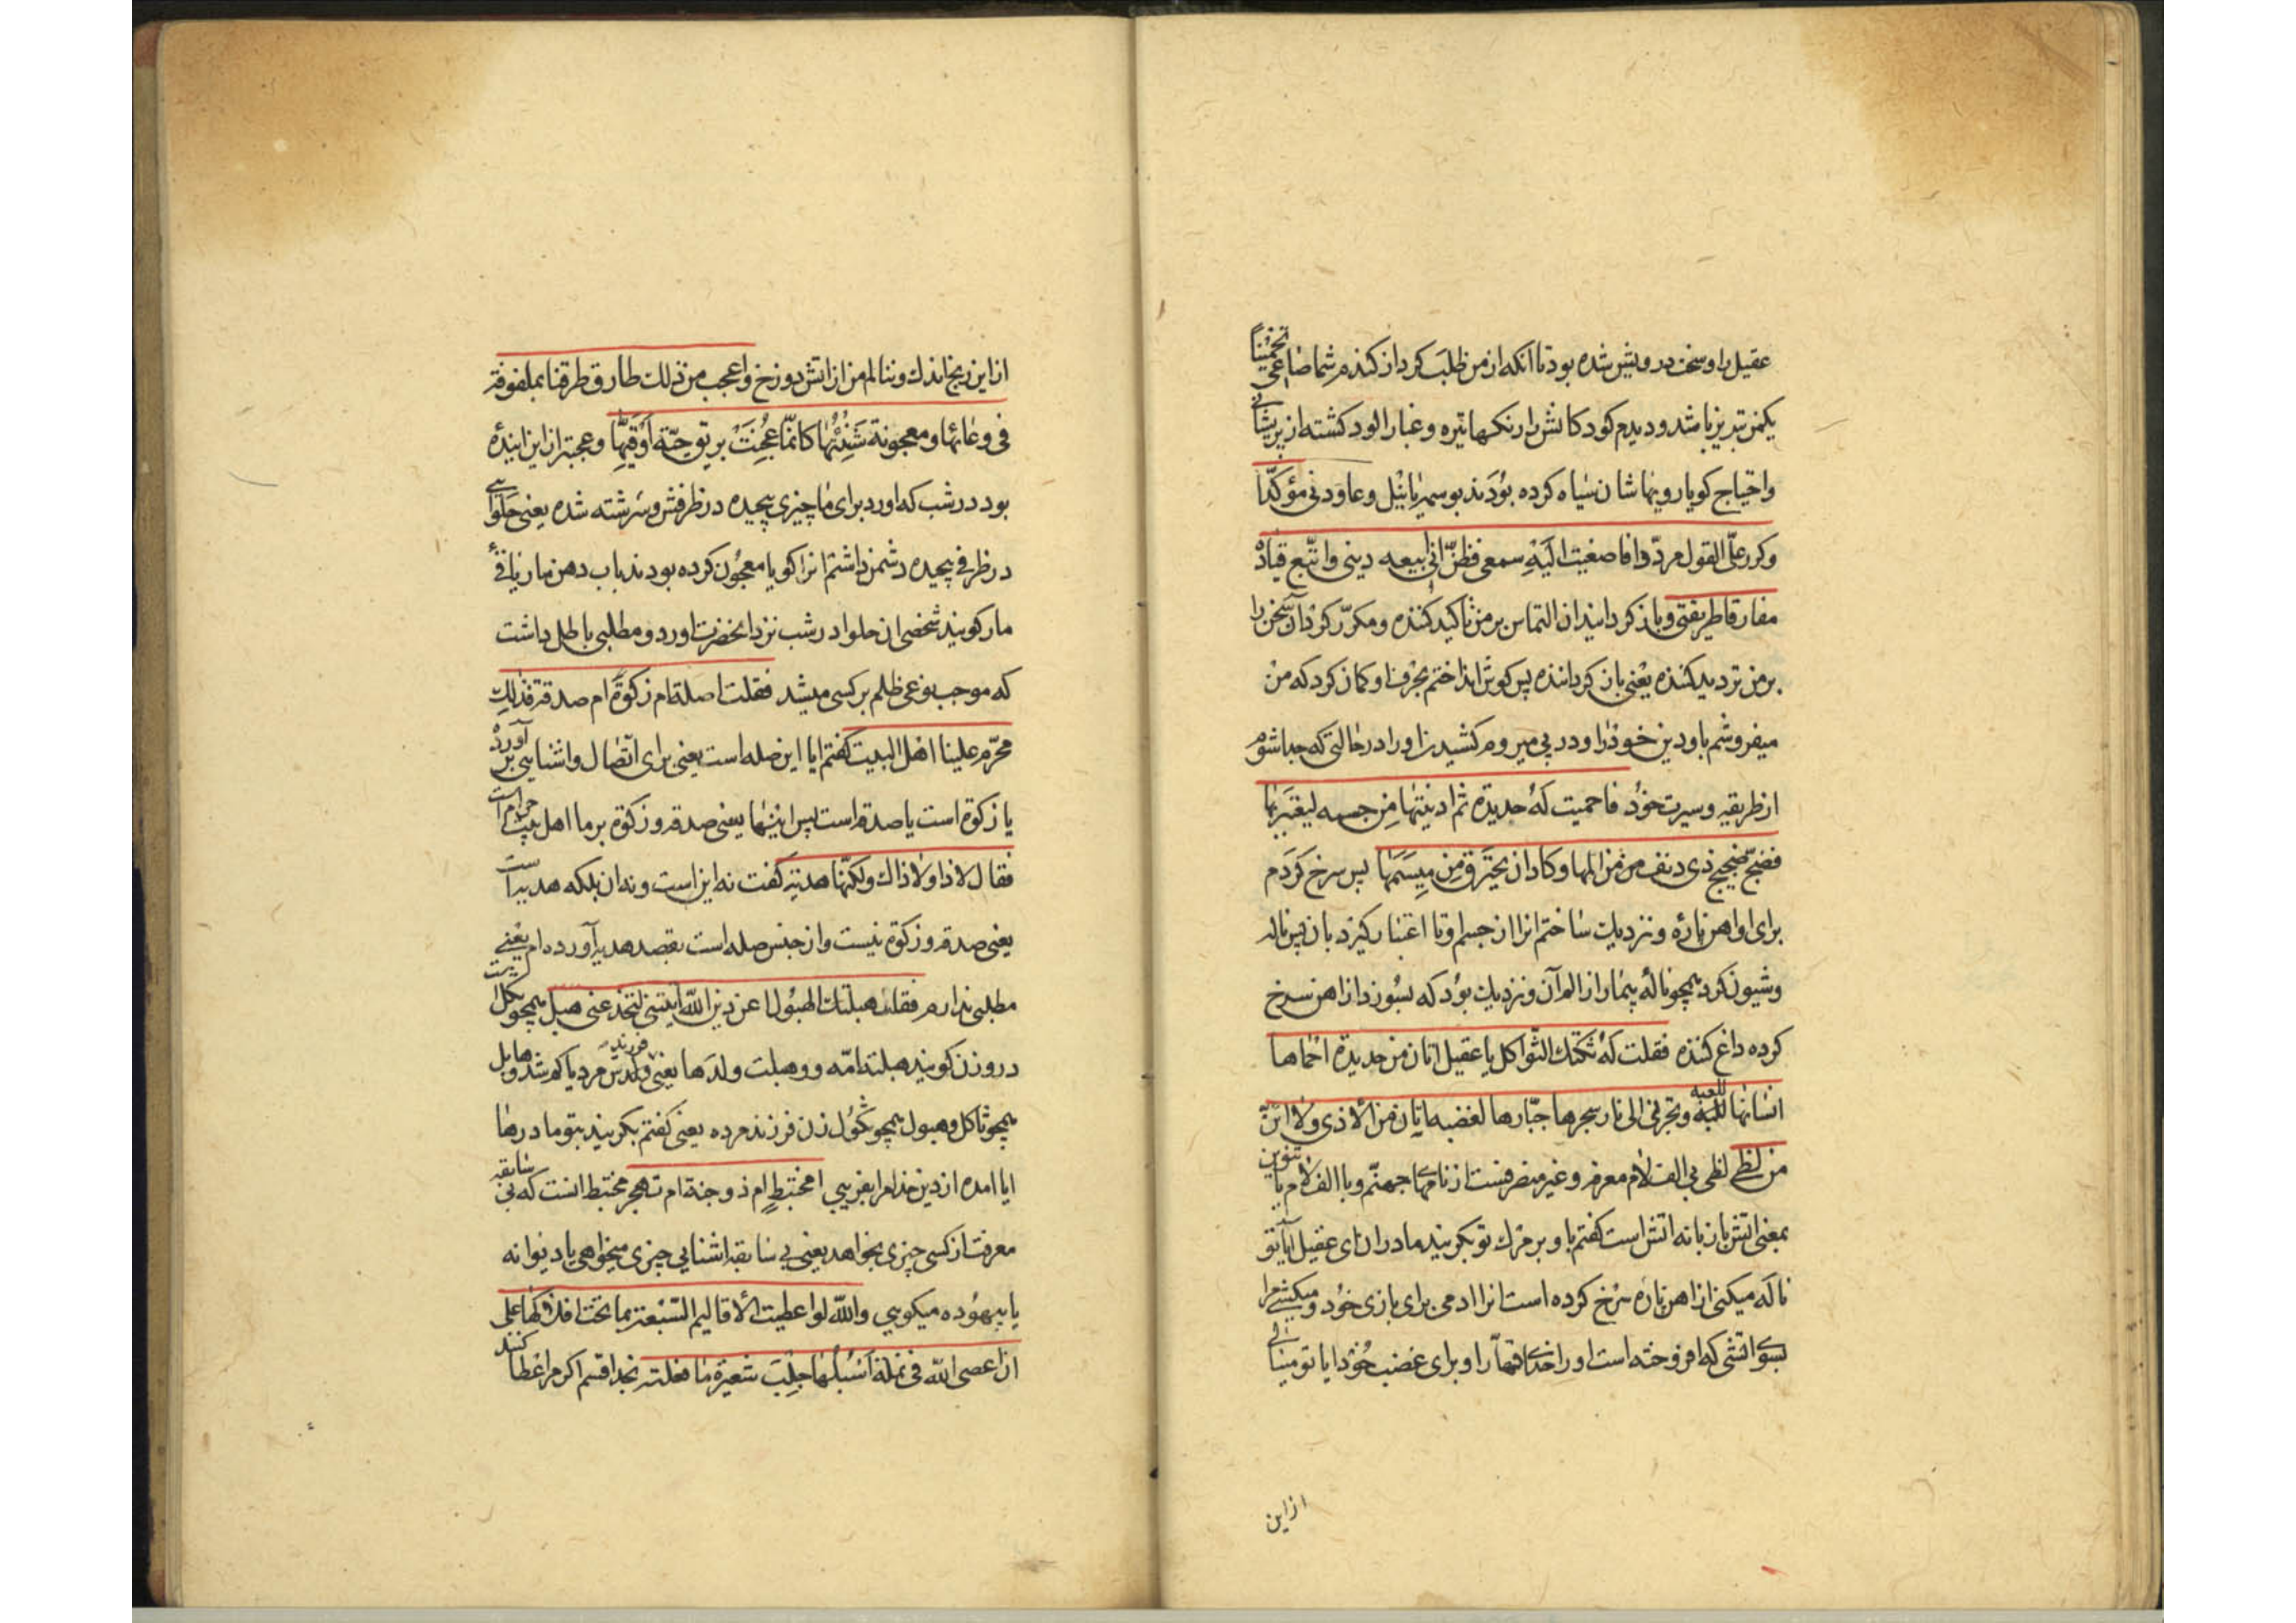 عقیل را و سخت درویش شده بود تا آنکه از من طلب کرد از کندم شما صاعی تخمیناً
یکمن تبریز باشد و دیدم کودکانش را رنکها تیره و غبار الود کشته از پریشانی
و احتیاج کویا رویها شان سیاه کرده بودند بوسمه یا بنیل و عاودنی مؤکّداً
و کرر علیّ القول مردّداً فاصغیت الیه سمعی فظنّ انی ابیعه دینی و اتّبع قیاده
مفارقا طریقتی و باز کردانید ان التماس بر من تاکید کننده و مکرّر کرد آن سخن را
بر من تردید کننده یعنی باز کرداننده پس کوش انداختم بحرف او کمان کرد که من
میفروشم باو دین خود را و در پی میروم کشیدن او را در حالتی که جدا شوم
از طریقه و سیرت خود فاحمیت له حدیدة ثم ادنیتها من جسمه لیعتبر بها
فضجّ ضجیج ذی دنف من المها و کاد ان یحترق من میسمها پس سرخ کردم
برای او اهن پاره و نزدیک ساختم انرا از جسم او تا اعتبار کیرد بان پس ناله
و شیون کرد همچو ناله بیمار از الم آن و نزدیک بود که بسوزد از اهن سرخ
کرده داغ کننده فقلت له ثکلتک الثواکل یا عقیل اتان من حدیدة احماها
انسانها للعبه و تجرنی الی نار سجرها جبّارها لغضبه اتان من الاذی و لا ائنّ
من لظی لظی بی الف لام معرفه و غیر منصرفست از نامهای جهنّم و با الف لام یا تنوین
بمعنی اتش با زبانه اتش است کفتم باو بر مرک تو بکریند مادران ای عقیل ایا تو
ناله میکنی از اهن پاره سرخ کرده است انرا ادمی برای بازی خود و میکشی مرا
بسوی اتشی که افروخته است او را خدای قهّار او برای غضب خود ایا تو مینالی
از این
از این رنج اندک و ننالم من از اتش دوزخ و اعجب من ذلک طارق طرقنا بملفوفة
فی وعائها و معجونة شنئتها کانّما عجنت بریق حیّة او قیئها و عجبتر از این اینده
بود در شب که اورد برای ما چیزی پیچیده در ظرفش و سرشته شده یعنی حلوایی
در ظرفی پیچیده دشمن داشتم انرا کویا معجون کرده بودند باب دهن مار یا قئ
مار کویند شخصی ان حلوا در شب نزد انحضرت اورد و مطلبی باطل داشت
که موجب نوعی ظلم بر کسی میشد فقلت اصلة ام زکوة ام صدقة فذلک
محرّم علینا اهل البیت کفتم ایا این صله است یعنی برای اتّصال و اشنایی آورده
یا زکوة است یا صدقه است پس اینها یعنی صدقه و زکوة بر ما اهل بیت حرام است
فقال لا ذا و لا ذاک و لکنّها هدیّة کفت نه این است و نه ان بلکه هدیه است
یعنی صدقه و زکوة نیست و از جنس صله است بقصد هدیه آورده ام یعنی
مطلبی ندارم فقلت هبلتک الهبول ا عن دین اللّه اتیتنی لتخدعنی هبل همچو ثکل
در وزن کویند هبلته امّه و هبلت ولدها یعنی ولدش فرزندش مرد یا کم شد و هابل
همچو ثاکل و هبول همچو ثکول زن فرزند مرده یعنی کفتم بکریند بتو مادرها
ایا امده از دین خدا مرا بفریبی ا مختبط ام ذو جنة ام تهجر مختبط انست که بی سابقه
معرفت از کسی چیزی بخواهد یعنی بی سابقه اشنایی چیزی میخواهی یا دیوانه
یا بیهوده میکویی و اللّه لو اعطیت الاقالیم السّبعة بما تحت افلاکها علی
ان اعصی اللّه فی نملة اسلبها جلب شعیرة ما فعلته بخدا قسم اکر مرا عطا کنند